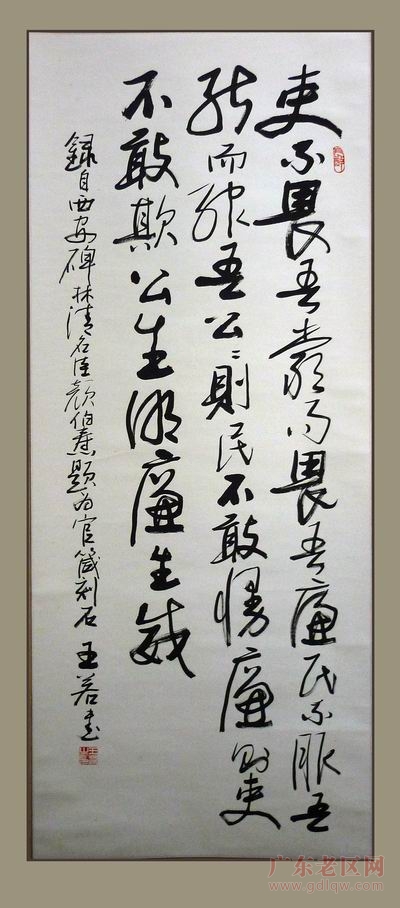 吏不畏吾嚴而畏吾廉民不服吾
能而服吾公〻則民不敢慢廉則吏
不敢欺公生明廉生威
録自西安碑林清名臣顏伯燾題为官箴刻石 王若書
广东老区网
www.gdlqw.com